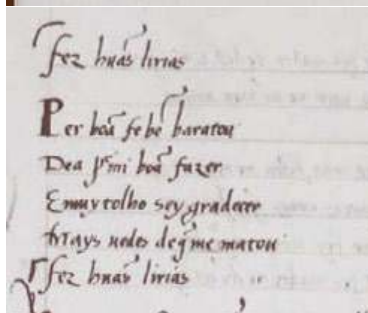 fez huãs lirias
Per boã fe bẽ baratou
Dea p̃mi boã fazer
E muytolho sey gradecer
Mays uedes de q̃ me matou
fez huãs lirias